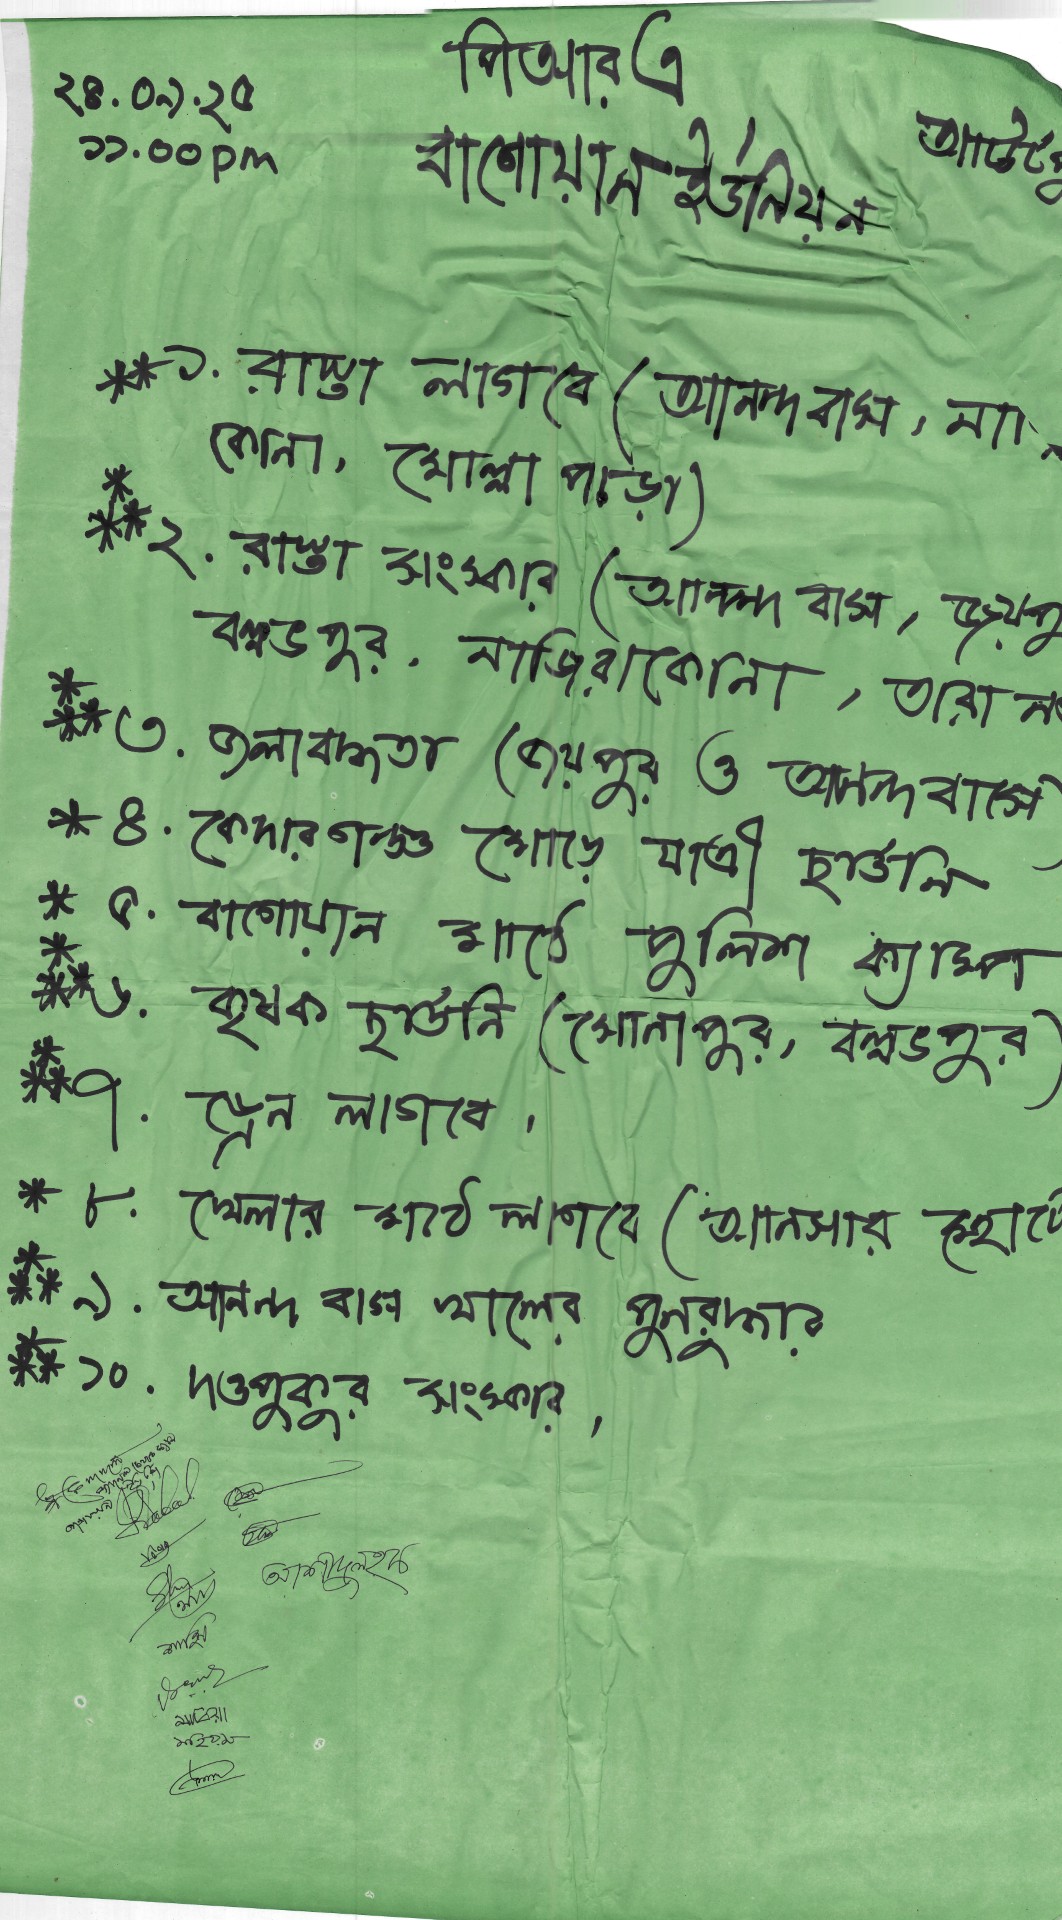 পিআরএ
২৪.০৯.২৫
১১.00pm
বাগোয়ান ইউনিয়ন
** ১. রাস্তা লাগবে (আনন্দবাস,
কোনা, মোল্লা পাড়া)
*** ২. রাস্তা সংস্কার (আনন্দ বাস, জয়পু
বল্লভপুর, নাজিরাকোনা, তারা
*** ৩. জলাবদ্ধতা (জয়পুর ও আনন্দবাসে)
* ৪. কেদারগঞ্জ মোড়ে যাত্রী ছাউনি
* ৫. বাগোয়ান মাঠে পুলিশ ক্যাম্প
*** ৬. কৃষক ছাউনি (সোনাপুর, বল্লভপুর)
*** ৭. ড্রেন লাগবে,
* ৮. খেলার মাঠ লাগবে (আনসার
*** ৯. আনন্দ বাস খালের পুনরুদ্ধার
*** ১০. দওপুকুর সংস্কার,